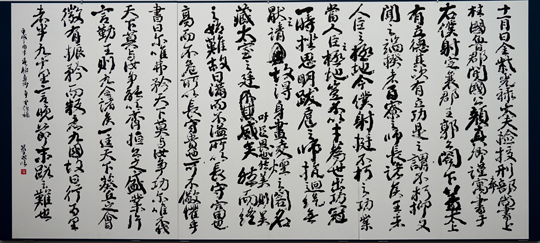 十一月日金紫光祿大夫檢校刑部尚書上
柱國魯郡開國公顏真卿謹寓書于
右僕射定襄郡王郭公閣下蓋太上
有立德其次有立功是之謂不朽抑又
聞之端揆者百寮之師長諸侯王者
人臣之極地今僕射挺不朽之功業
當人臣之極地豈不以才為世出功冠
一時挫思明跋扈之師抗迴紇無
厭之請故得身畫凌煙之閣名
藏太室之廷吁足畏也然美則美矣然而終
之始難故曰滿而不溢所以長守富也
高而不危所以長守貴也可不儆懼乎
書曰爾唯弗矜天下莫與汝爭功爾唯弗伐
天下莫與汝爭能以齊桓公之盛業片
言勤王則九合諸侯一匡天下葵丘之會
微有振矜而叛者九國故曰行百里
者半九十里言晚節末路之難也